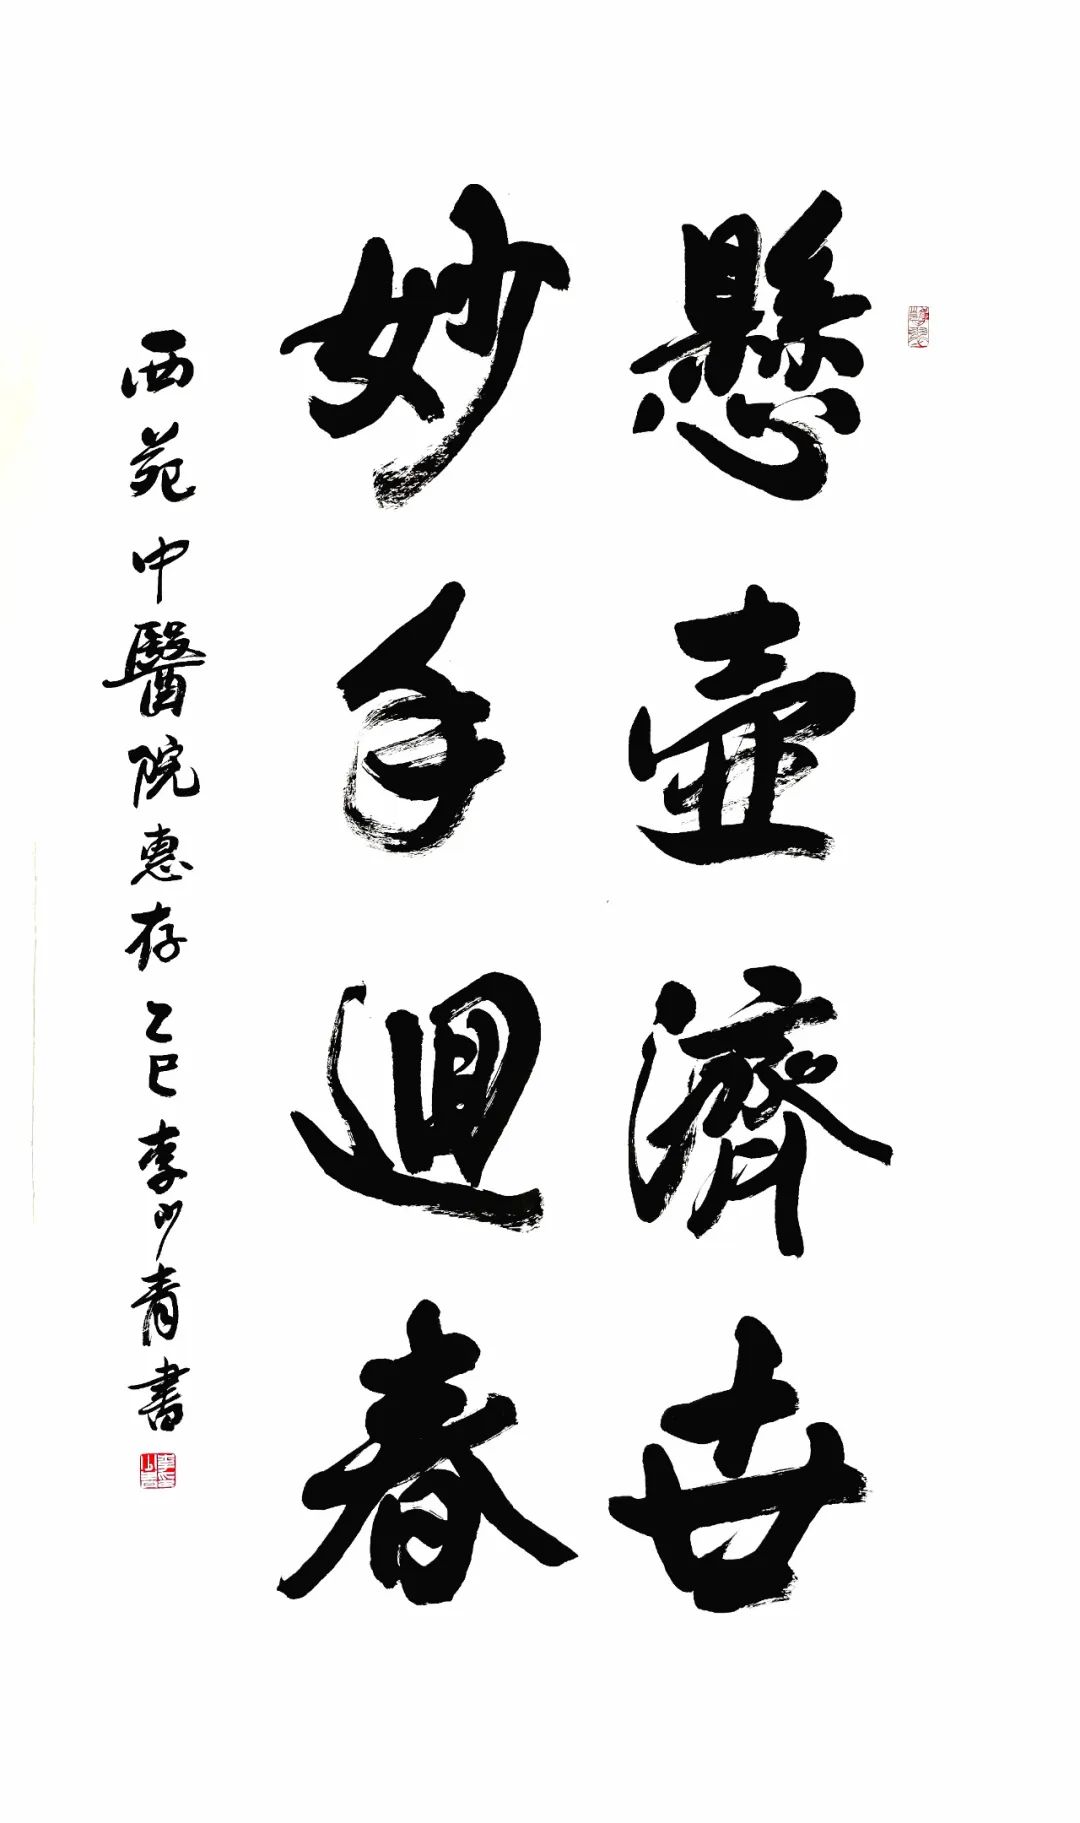 懸壺濟世
妙手迴春
西苑中醫院惠存乙巳李山青書